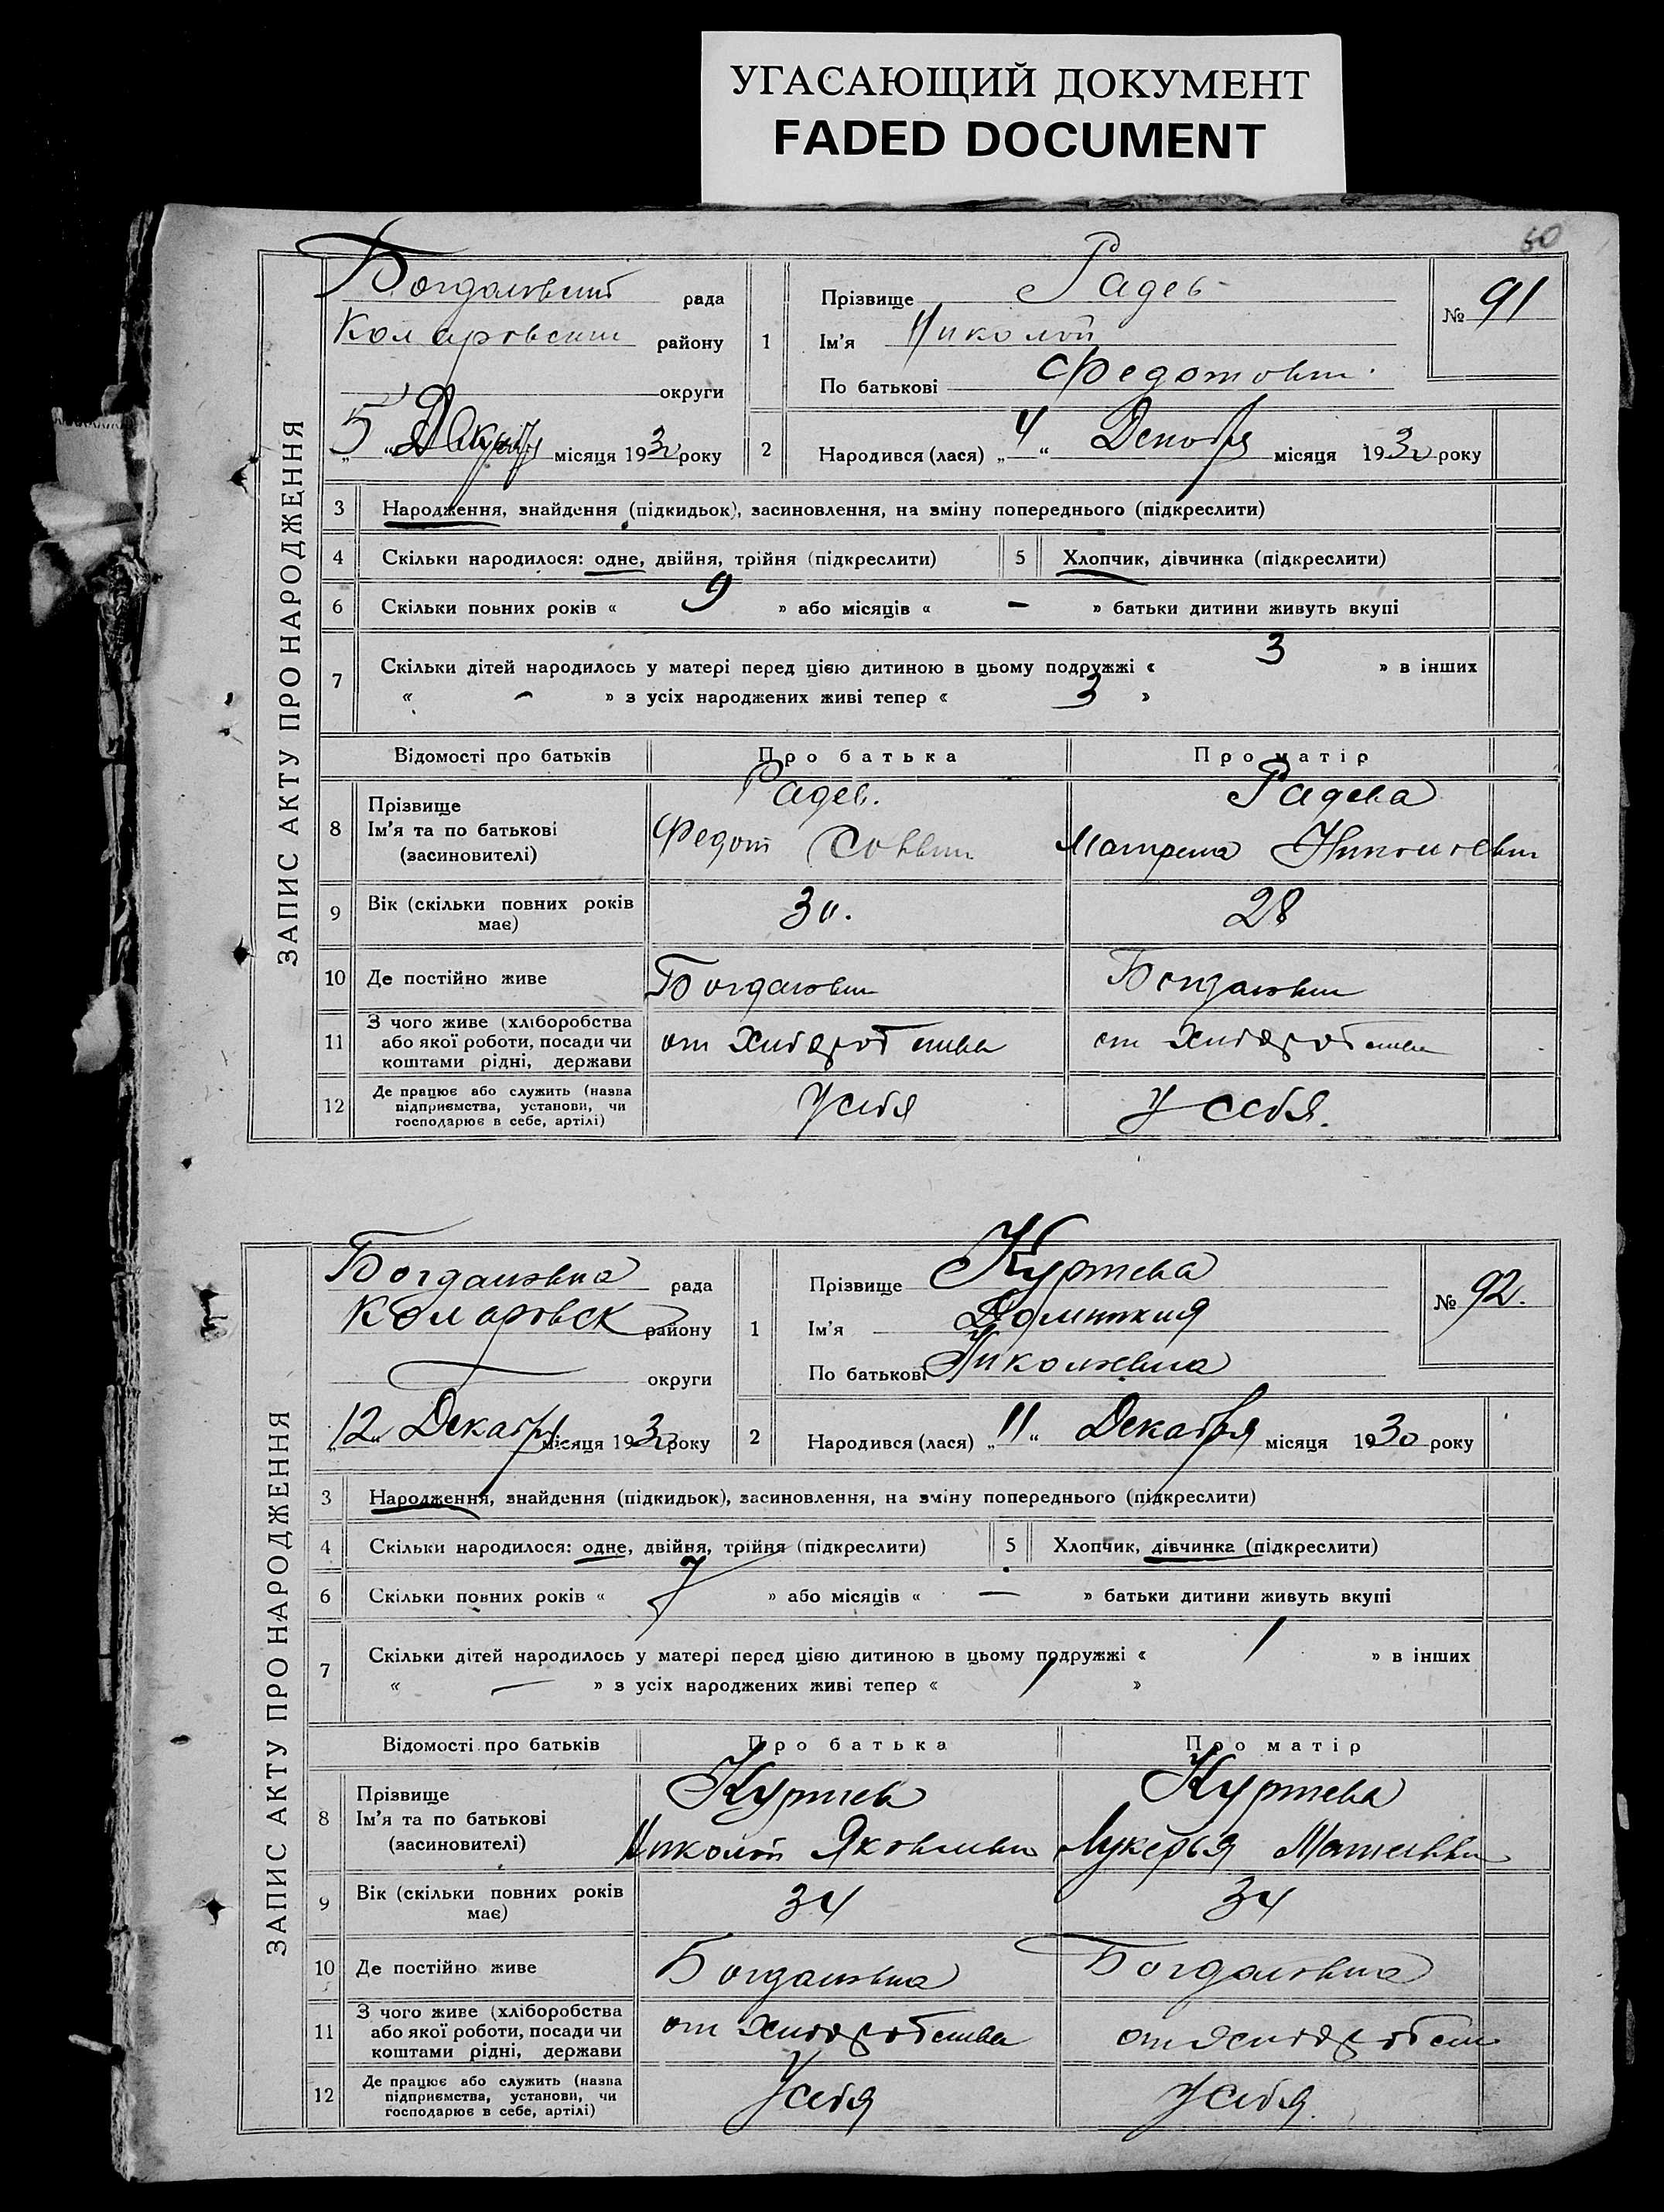 УГАСАЮЩИЙ ДОКУМЕНТ
FADED DOCUMENT
60
ЗАПИС АКТУ ПРО НАРОДЖЕННЯ
рада
району
округи
5 місяця 1930 року
1
Прізвище Радев
Ім'я Николой
По батькові Федотович
№ 91
2
Народився (лася) „4“ Декобря місяця 1930 року
3 Народження, знайдення (підкидьок), засиновлення, на зміну попереднього (підкреслити)
4 Скільки народилося: одне, двійня, трійня (підкреслити) 5 Хлопчик, дівчинка (підкреслити)
6 Скільки повних років « 9 » або місяців « — » батьки дитини живуть вкупі
7 Скільки дітей народилось у матері перед цією дитиною в цьому подружжі « 3 » в інших
« — » з усіх народжених живі тепер « 3 »
Відомості про батьків Про батька Про матір
8 Прізвище
Ім'я та по батькові
(засновителі)
Радев.
Федот
Радева
Матрена
9 Вік (скільки повних років
має)
30.
28
10 Де постійно живе
11 З чого живе (хліборобства
або якої роботи, посади чи
коштами рідні, держави
от
от
12 Де працює або служить (назва
підприємства, установи, чи
господарює в себе, артілі)
У себя
У себя.
ЗАПИС АКТУ ПРО НАРОДЖЕННЯ
Богдановка рада
Коларовск району
округи
„12“ Декабря місяця 1930 року
1
Прізвище Куртева
Ім'я
По батькові
№ 92.
2
Народився (лася) „11“ Декабря місяця 1930 року
3 Народження, знайдення (підкидьок), засиновлення, на зміну попереднього (підкреслити)
4 Скільки народилося: одне, двійня, трійня (підкреслити) 5 Хлопчик, дівчинка (підкреслити)
6 Скільки повних років « 7 » або місяців « — » батьки дитини живуть вкупі
7 Скільки дітей народилось у матері перед цією дитиною в цьому подружжі « 1 » в інших
« — » з усіх народжених живі тепер « 1 »
Відомості про батьків Про батька Про матір
8 Прізвище
Ім'я та по батькові
(засиновителі)
Куртев
Николой
Куртева
Лукерья
9 Вік (скільки повних років
має)
34
34
10 Де постійно живе
Богдановка
Богдановка
11 З чого живе (хліборобства
або якої роботи, посади чи
коштами рідні, держави
от
от
12 Де працює або служить (назва
підприємства, установи, чи
господарює в себе, артілі)
У себя
У себя.